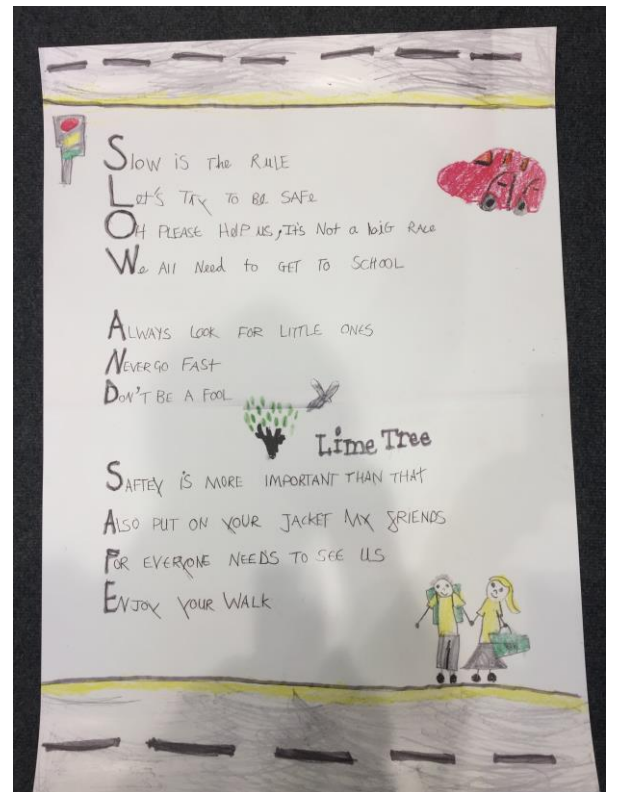 Slow is The RULE
Let's TRY TO BE SAFe
OH PLEASE HelP US, It's Not a biG RACe
We All Need to GET TO SCHOOL
ALWAYS LOOK FOR LITTLE ONES
NEVER GO FAST
DON'T BE A FOOL
Lime Tree
SAFTEY iS MORE IMPORTANT THAN THAT
ALSO PUT ON YOUR JACKET MY FRIENDS
FOR EVERYONE NEEDS TO SEE US
ENJOY YOUR WALK